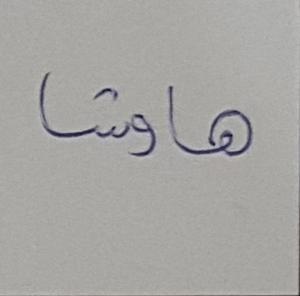 هاوشا